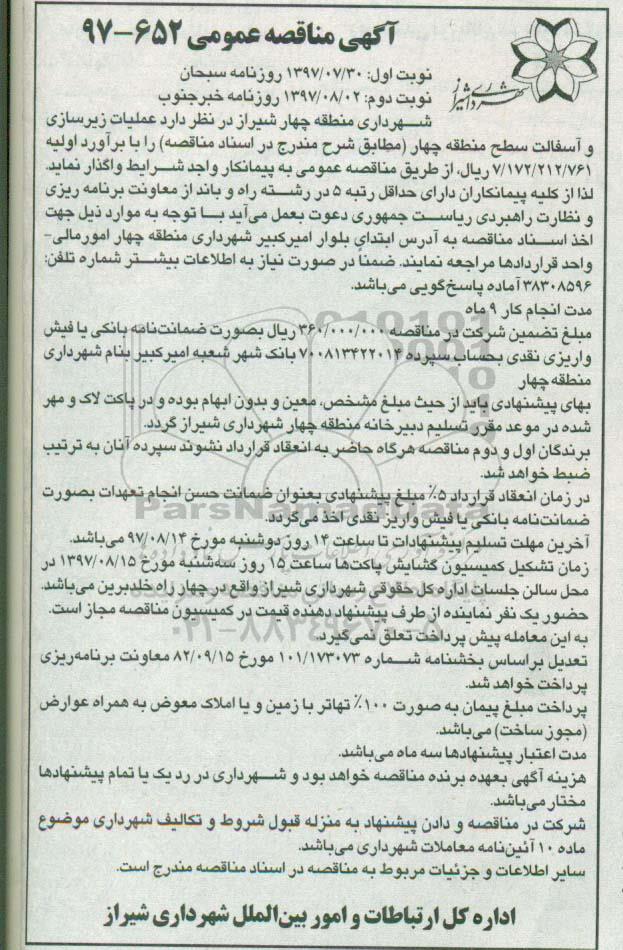 آگهی مناقصه عمومی ۶۵۲-۹۷
شهرداری شیراز
نوبت اول: ۱۳۹۷/۰۷/۳۰ روزنامه سبحان
نوبت دوم: ۱۳۹۷/۰۸/۰۲ روزنامه خبرجنوب
شهرداری منطقه چهار شیراز در نظر دارد عملیات زیرسازی
و آسفالت سطح منطقه چهار (مطابق شرح مندرج در اسناد مناقصه) را با برآورد اولیه
۷/۱۷۲/۲۱۲/۷۶۱ ریال، از طریق مناقصه عمومی به پیمانکار واجد شرایط واگذار نماید.
لذا از کلیه پیمانکاران دارای حداقل رتبه ۵ در رشته راه و باند از معاونت برنامه ریزی
و نظارت راهبردی ریاست جمهوری دعوت بعمل می‌آید با توجه به موارد ذیل جهت
اخذ اسناد مناقصه به آدرس ابتدای بلوار امیرکبیر شهرداری منطقه چهار امورمالی-
واحد قراردادها مراجعه نمایند. ضمناً در صورت نیاز به اطلاعات بیشتر شماره تلفن:
۳۸۳۰۸۵۹۶ آماده پاسخ‌گویی می‌باشد.
مدت انجام کار ۹ ماه
مبلغ تضمین شرکت در مناقصه ۳۶۰/۰۰۰/۰۰۰ ریال بصورت ضمانت‌نامه بانکی یا فیش
واریزی نقدی بحساب سپرده ۷۰۰۸۱۳۴۲۲۰۱۴ بانک شهر شعبه امیرکبیر بنام شهرداری
منطقه چهار
بهای پیشنهادی باید از حیث مبلغ مشخص، معین و بدون ابهام بوده و در پاکت لاک و مهر
شده در موعد مقرر تسلیم دبیرخانه منطقه چهار شهرداری شیراز گردد.
برندگان اول و دوم مناقصه هرگاه حاضر به انعقاد قرارداد نشوند سپرده آنان به ترتیب
ضبط خواهد شد.
در زمان انعقاد قرارداد ۵٪ مبلغ پیشنهادی بعنوان ضمانت حسن انجام تعهدات بصورت
ضمانت‌نامه بانکی یا فیش واریز نقدی اخذ می‌گردد.
ParsNamadData
آخرین مهلت تسلیم پیشنهادات تا ساعت ۱۴ روز دوشنبه مورخ ۹۷/۰۸/۱۴ می‌باشد.
زمان تشکیل کمیسیون گشایش پاکت‌ها ساعت ۱۵ روز سه‌شنبه مورخ ۱۳۹۷/۰۸/۱۵ در
محل سالن جلسات اداره کل حقوقی شهرداری شیراز واقع در چهار راه خلدبرین می‌باشد.
حضور یک نفر نماینده از طرف پیشنهاد دهنده قیمت در کمیسیون مناقصه مجاز است.
به این معامله پیش پرداخت تعلق نمی‌گیرد.
تعدیل براساس بخشنامه شماره ۱۰۱/۱۷۳۰۷۳ مورخ ۸۲/۰۹/۱۵ معاونت برنامه‌ریزی
پرداخت خواهد شد.
پرداخت مبلغ پیمان به صورت ۱۰۰٪ تهاتر با زمین و یا املاک معوض به همراه عوارض
(مجوز ساخت) می‌باشد.
مدت اعتبار پیشنهادها سه ماه می‌باشد.
هزینه آگهی بعهده برنده مناقصه خواهد بود و شهرداری در رد یک یا تمام پیشنهادها
مختار می‌باشد.
شرکت در مناقصه و دادن پیشنهاد به منزله قبول شروط و تکالیف شهرداری موضوع
ماده ۱۰ آئین‌نامه معاملات شهرداری می‌باشد.
سایر اطلاعات و جزئیات مربوط به مناقصه در اسناد مناقصه مندرج است.
اداره کل ارتباطات و امور بین‌الملل شهرداری شیراز